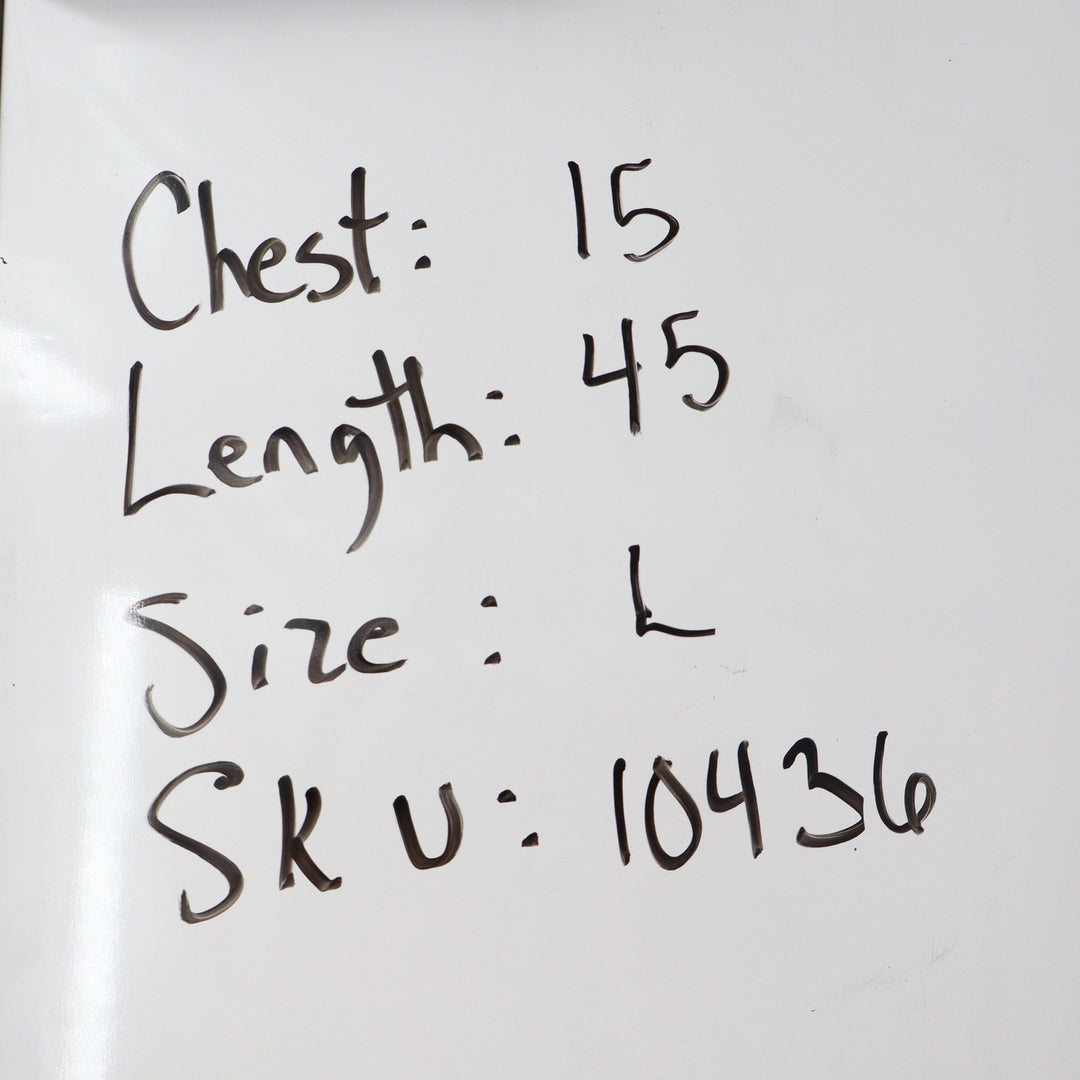 Chest: 15
Length: 45
Size: L
SKU: 10436